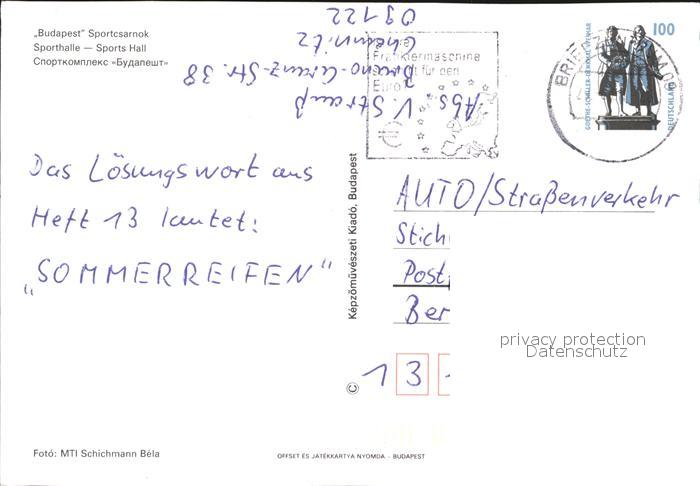 „Budapest” Sportcsarnok
Sporthalle — Sports Hall
Спорткомплекс «Будапешт»
Abs. V. Strauß
Bruno-Granz-Str. 38
Chemnitz
09122
Frankiermaschine
für den
Euro
BRIEF
100
GOETHE-SCHILLER-DENKMAL WEIMAR
DEUTSCHLAND
Das Lösungswort aus
Heft 13 lautet:
„SOMMERREIFEN"
Képzőművészeti Kiadó, Budapest
©
AUTO/Straßenverkehr
Stich
Post
Ber
13
privacy protection
Datenschutz
Fotó: MTI Schichmann Béla
OFFSET ÉS JÁTÉKKÁRTYA NYOMDA - BUDAPEST